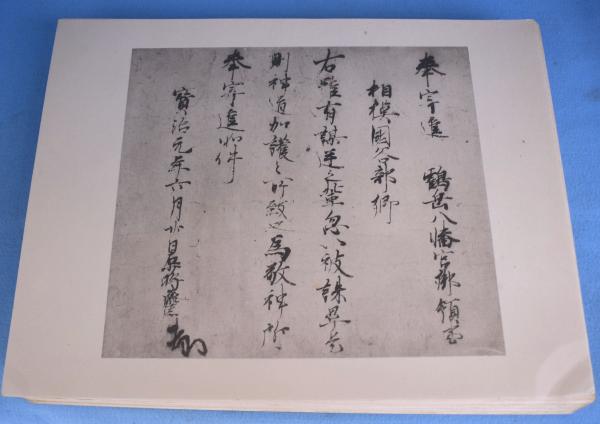 奉寄進　鶴岳八幡宮御領
相模國谷部郷
右雖有謀逆之輩忽以被誅畢是
則神道加護之所致也為敬神所
奉寄進如件
寳治元年六月廿日